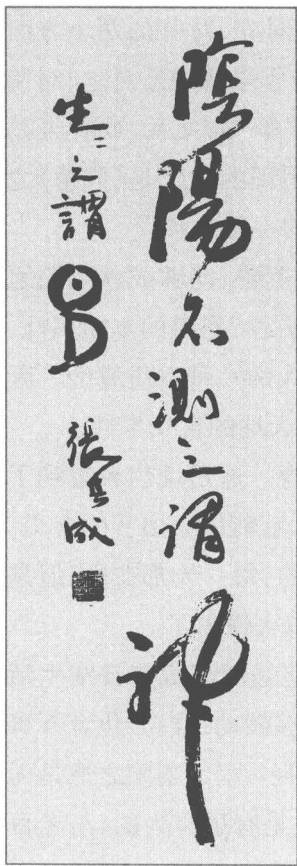 陰陽不測之謂神
生〻之謂易 張其成